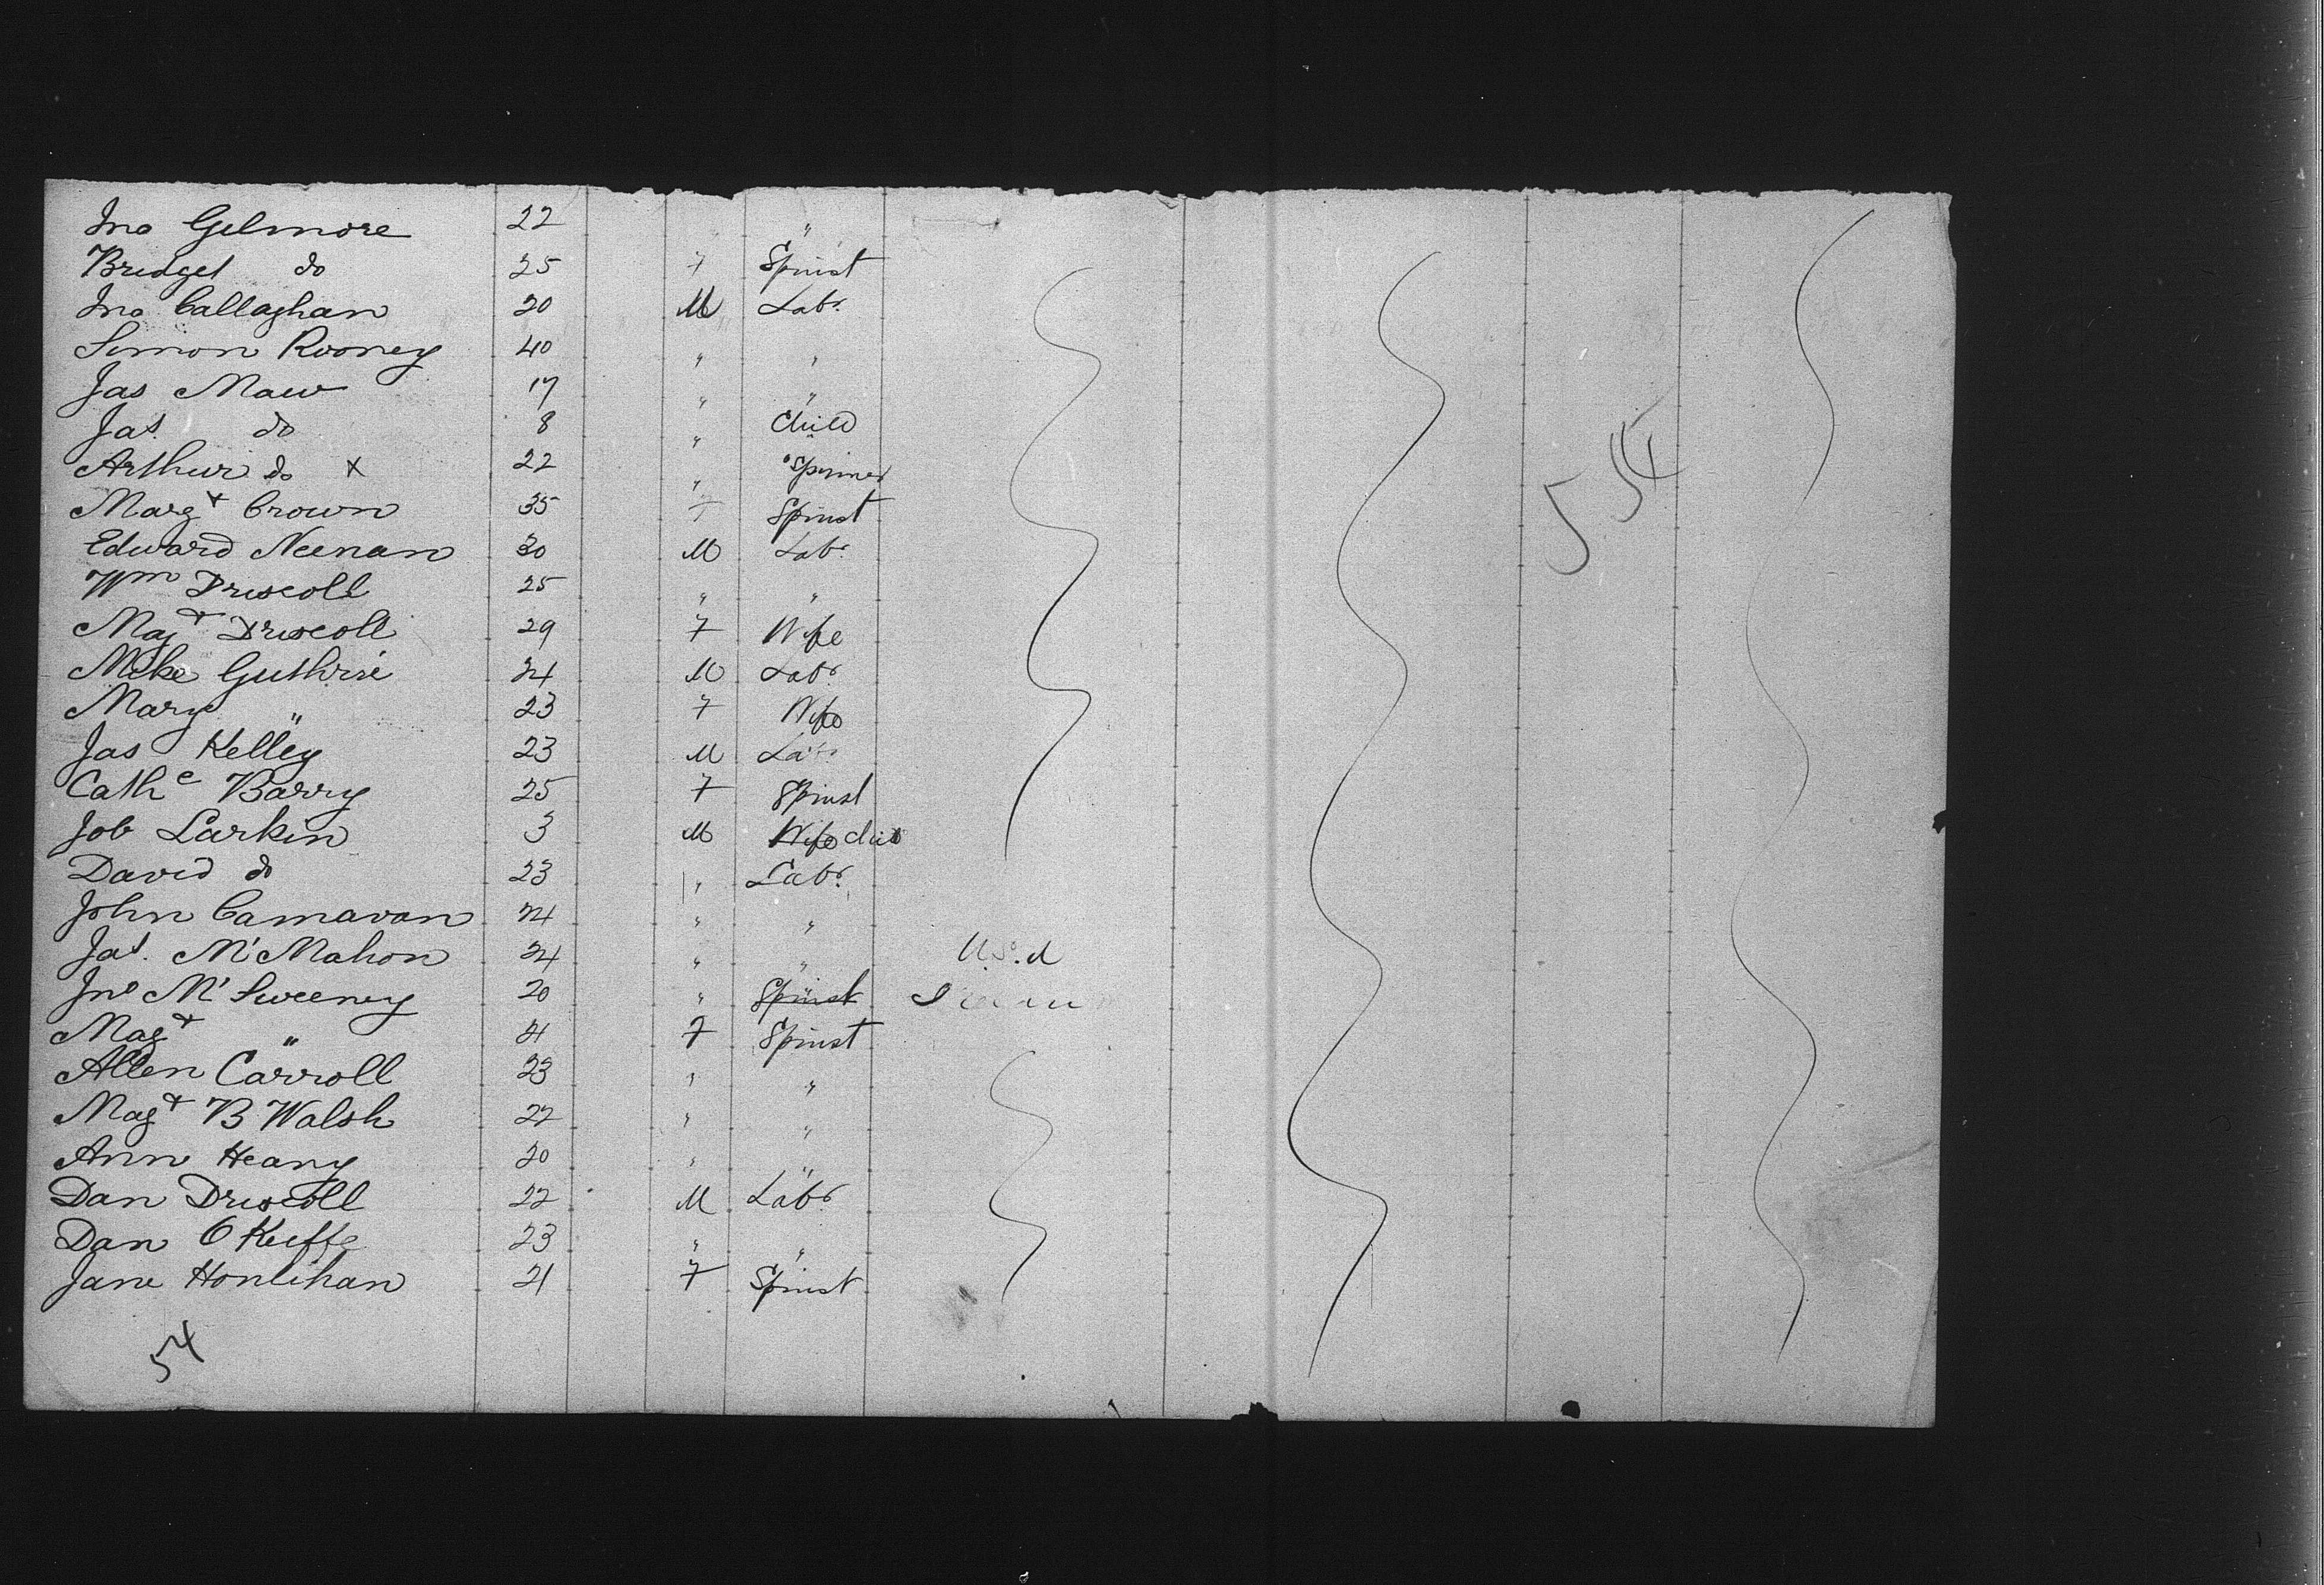 Jno Gilmore 22 "
Bridget do 25 F Spinst
Jno Callaghan 20 M Labr.
Simon Rooney 40 " "
Jas Maw 17 " "
Jas. do 8 " Child
Arthur do x 22 " Spinner
Margt Crown 35 F Spinst
Edward Neenan 30 M Labr.
Wm Driscoll 25 " "
Magt Driscoll 29 F Wife
Mike Guthrie 24 M Labr
Mary " 23 F Wife
Jas Kelley 23 M Labr
Cathe Barry 25 F Spinst
Job Larkin 3 M Wife child
David do 23 " Labr.
John Camavan 24 " "
Jas. McMahon 24 " " U.S.A
Jno McSweeney 20 " Spinst
Magt " 21 F Spinst
Allen Carroll 23 " "
Magt B Walsh 22 " "
Ann Heany 20 " "
Dan Driscoll 22 M Labr
Dan O Keiffe 23 " "
Jane Honlihan 21 F Spinst
54